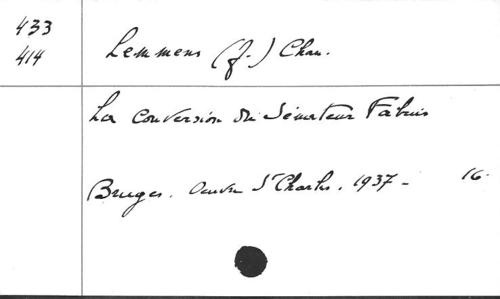 433
414
Lemmens (J.) Chan.
La conversion du Sénateur Fabius
Bruges. Oeuvre St Charles. 1937 - 16.